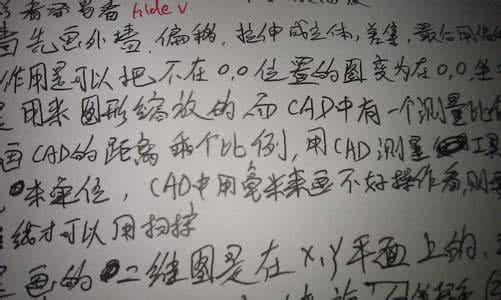 者 hide v
先画外墙,偏移,拉伸成立体,差集,最后用
作用是可以把不在0,0位置的图变为在0,0坐
用来图形缩放的 而CAD中有一个测量比
画CAD的距离乘个比例,用CAD测量 工具
来单位,CAD中用毫米来画不好操作看,则
线才可以用扫掠
画的二维图是在x,y平面上的,